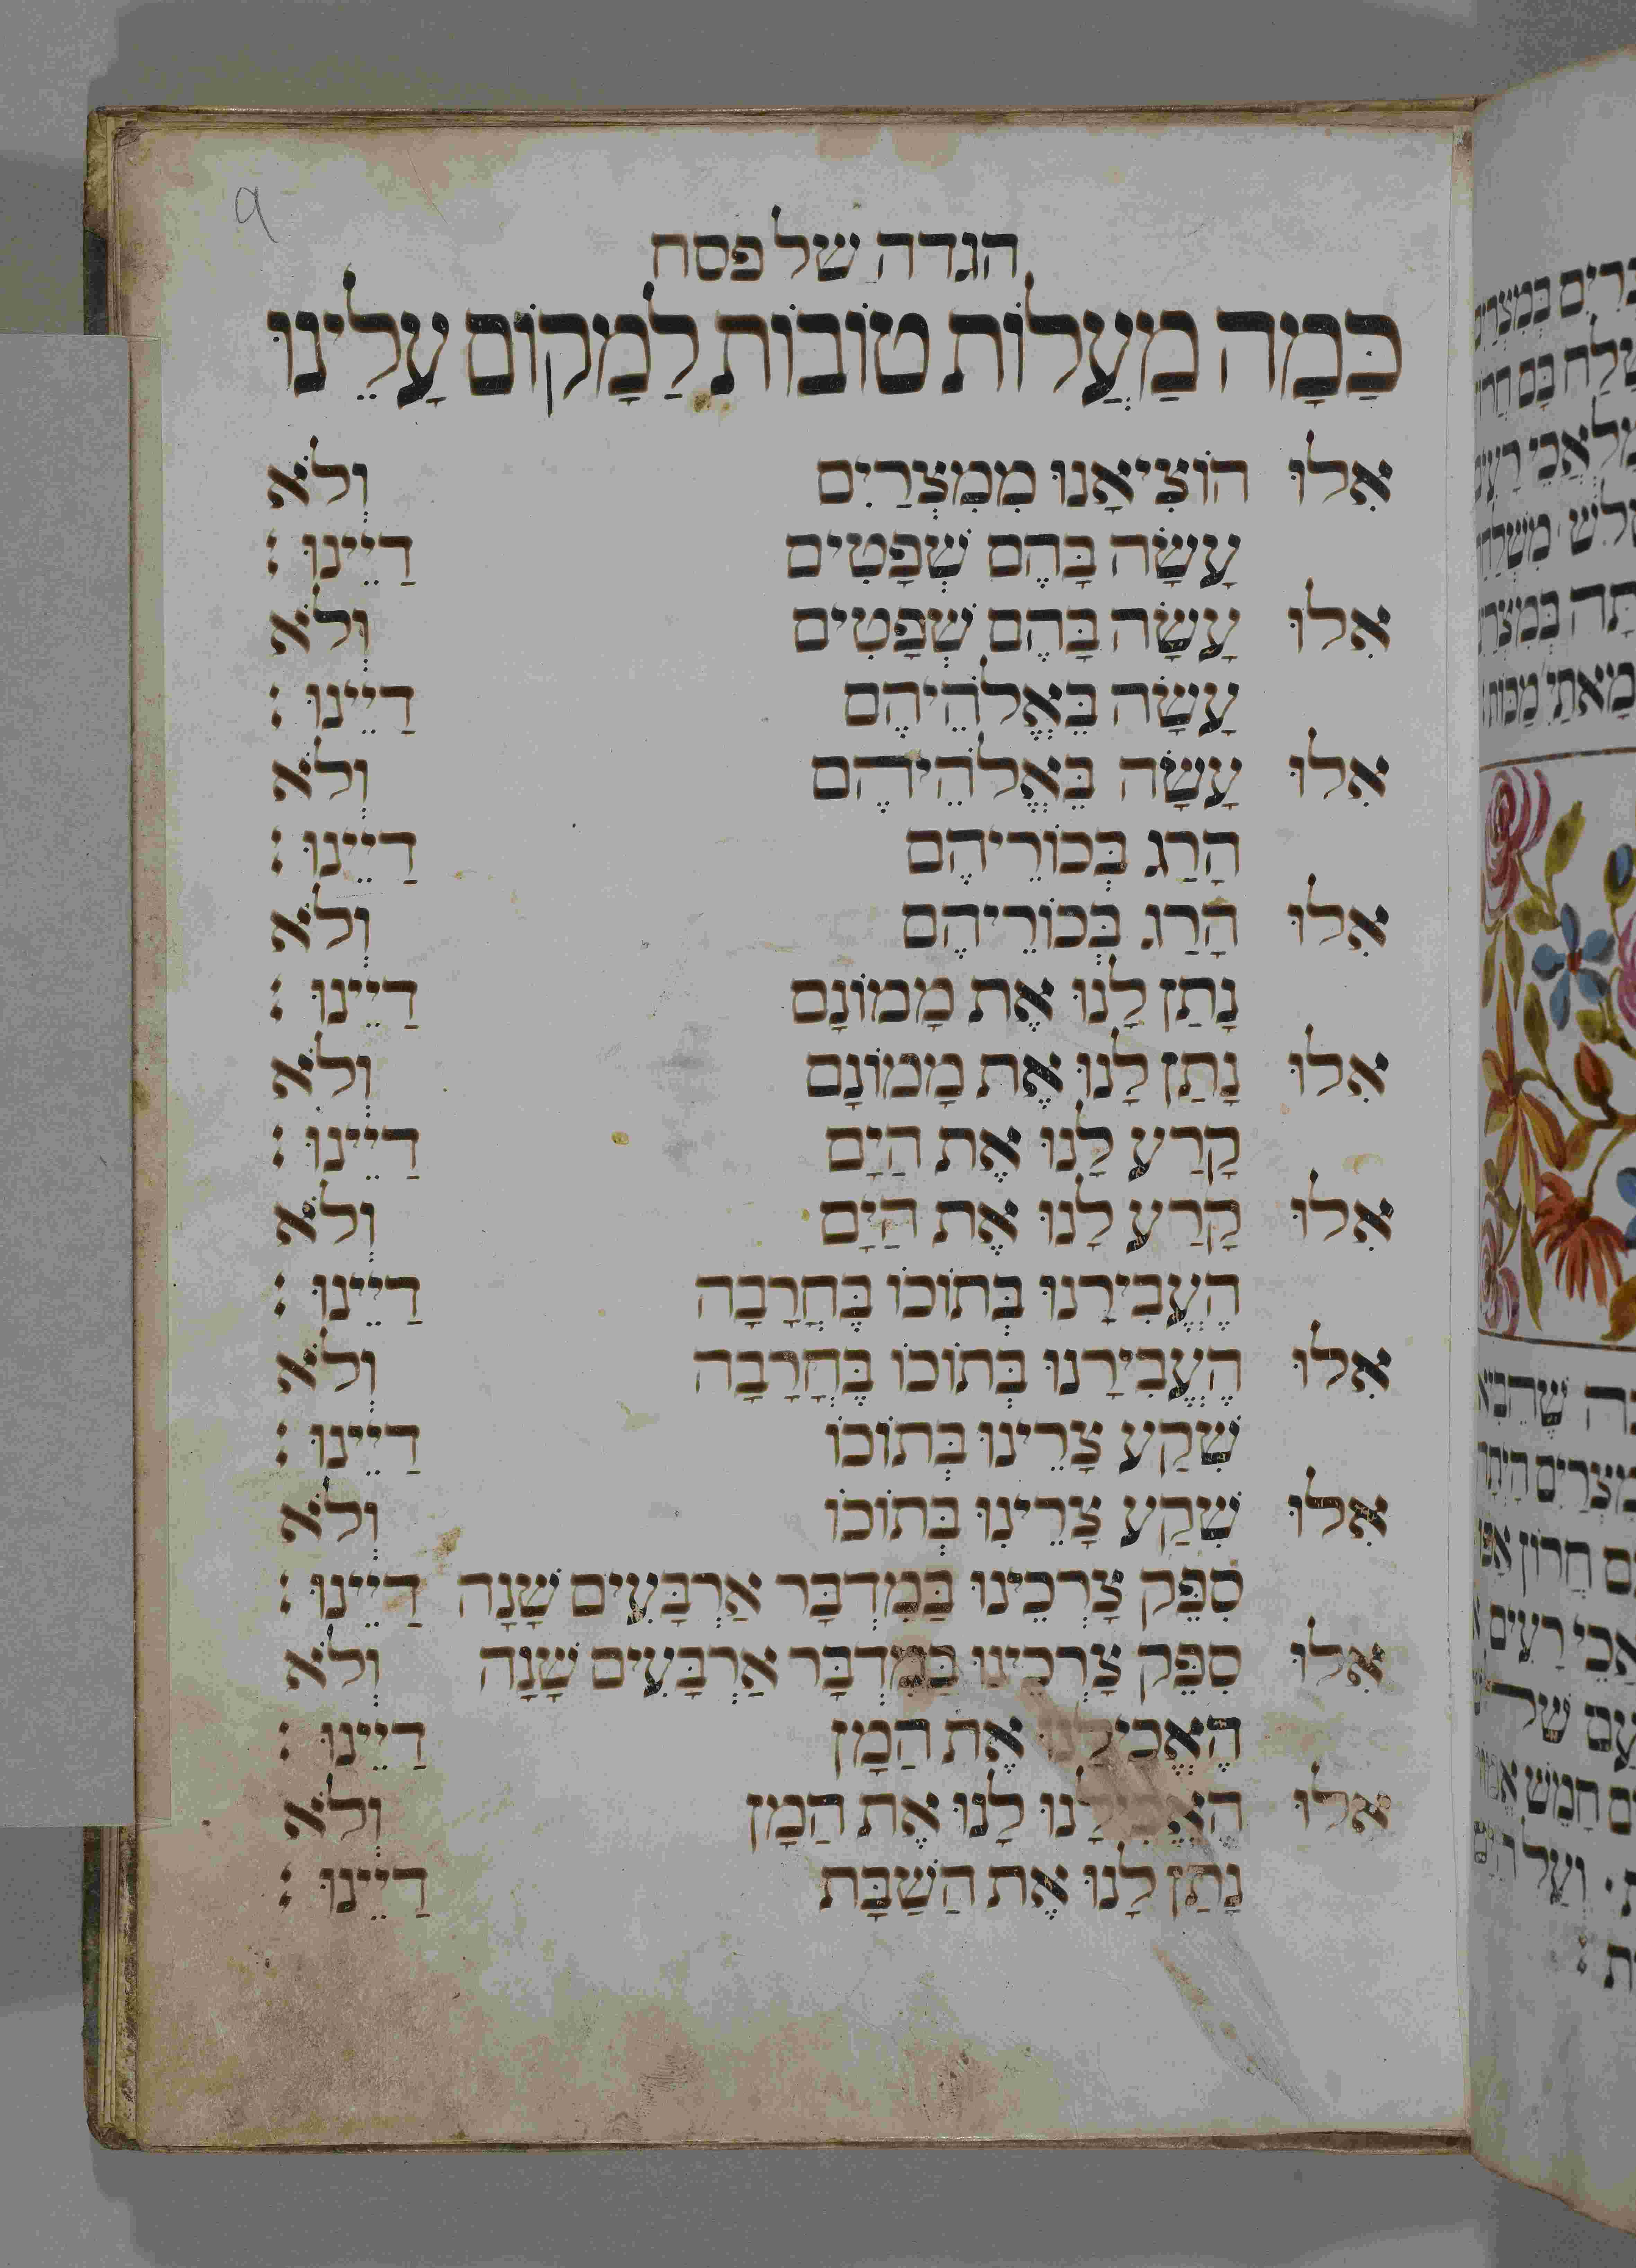 9
הגדה של פסח
כַּמָה מַעֲלוֹת טוֹבוֹת לַמָקוֹם עָלֵינוּ
אִלוּ הוֹצִיאָנוּ מִמִצְרַיִם וְלֹא
עָשָׂה בָּהֶם שְׁפָטִים דַיֵינוּ :
אִלוּ עָשָׂה בָּהֶם שְׁפָטִים וְלֹא
עָשָׂה בֵּאֱלֹהֵיהֶם דַיֵינוּ :
אִלוּ עָשָׂה בֵּאֱלֹהֵיהֶם וְלֹא
הָרַג בְּכוֹרֵיהֶם דַיֵינוּ :
אִלוּ הָרַג בְּכוֹרֵיהֶם וְלֹא
נָתַן לָנוּ אֶת מָמוֹנָם דַיֵינוּ :
אִלוּ נָתַן לָנוּ אֶת מָמוֹנָם וְלֹא
קָרַע לָנוּ אֶת הַיָם דַיֵינוּ :
אִלוּ קָרַע לָנוּ אֶת הַיָם וְלֹא
הֶעֱבִירָנוּ בְּתוֹכוֹ בֶּחֳרָבָה דַיֵינוּ :
אִלוּ הֶעֱבִירָנוּ בְּתוֹכוֹ בֶּחֳרָבָה וְלֹא
שִׁקַע צָרֵינוּ בְּתוֹכוֹ דַיֵינוּ :
אִלוּ שִׁקַע צָרֵינוּ בְּתוֹכוֹ וְלֹא
סִפֵּק צָרְכֵינוּ בַּמִדְבָּר אַרְבָּעִים שָׁנָה דַיֵינוּ :
אִלוּ סִפֵּק צָרְכֵינוּ בַּמִדְבָּר אַרְבָּעִים שָׁנָה וְלֹא
הֶאֱכִילָנוּ אֶת הַמָן דַיֵינוּ :
אִלוּ הֶאֱכִילָנוּ לָנוּ אֶת הַמָן וְלֹא
נָתַן לָנוּ אֶת הַשַׁבָּת דַיֵינוּ :